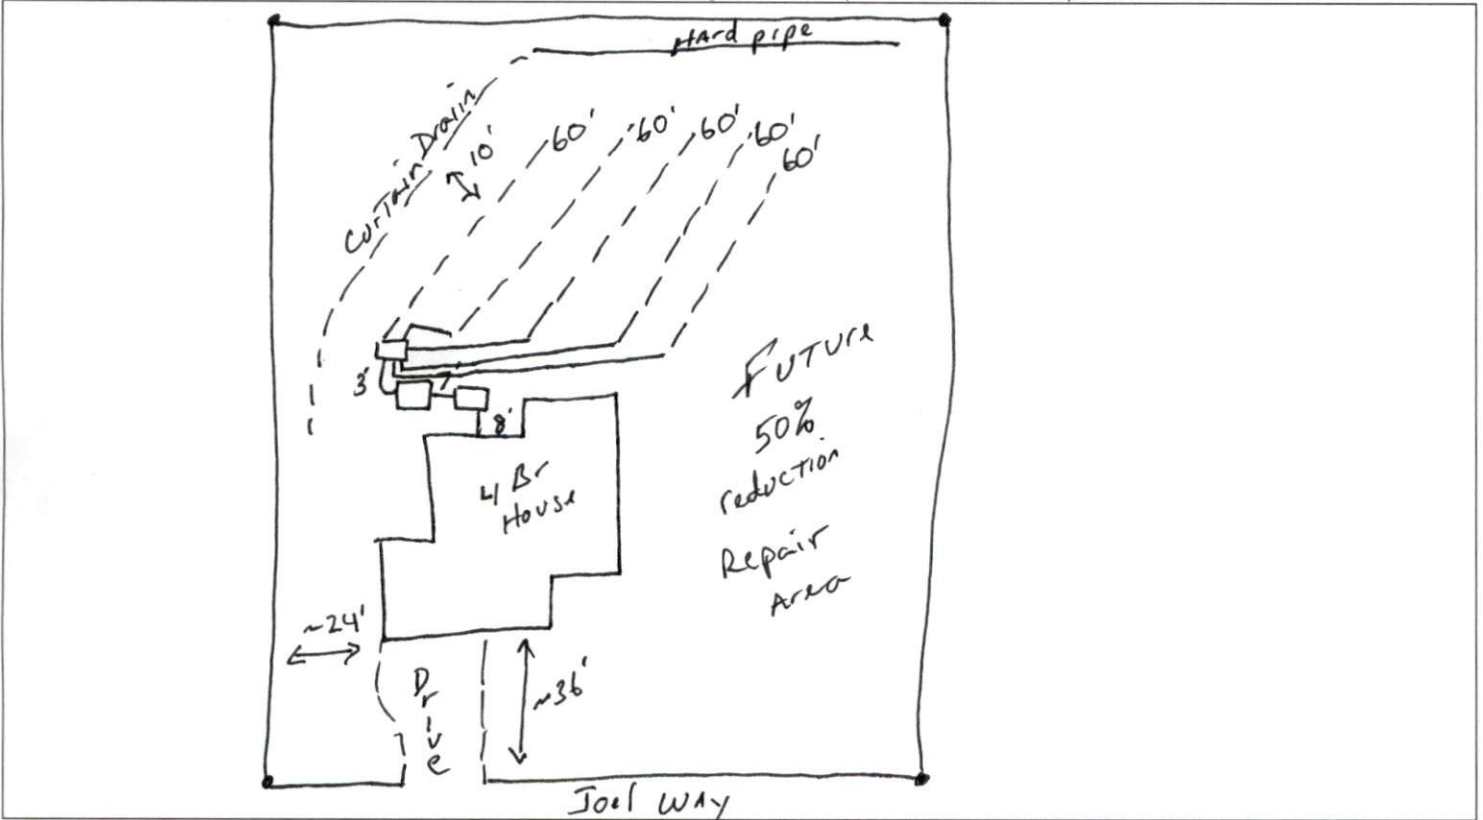 Hard pipe
Curtain Drain
10'
60'
60'
60'
60'
60'
3'
7'
8'
4 Br
House
Future
50%
reduction
Repair
Area
~24'
~36'
Drive
Joel Way